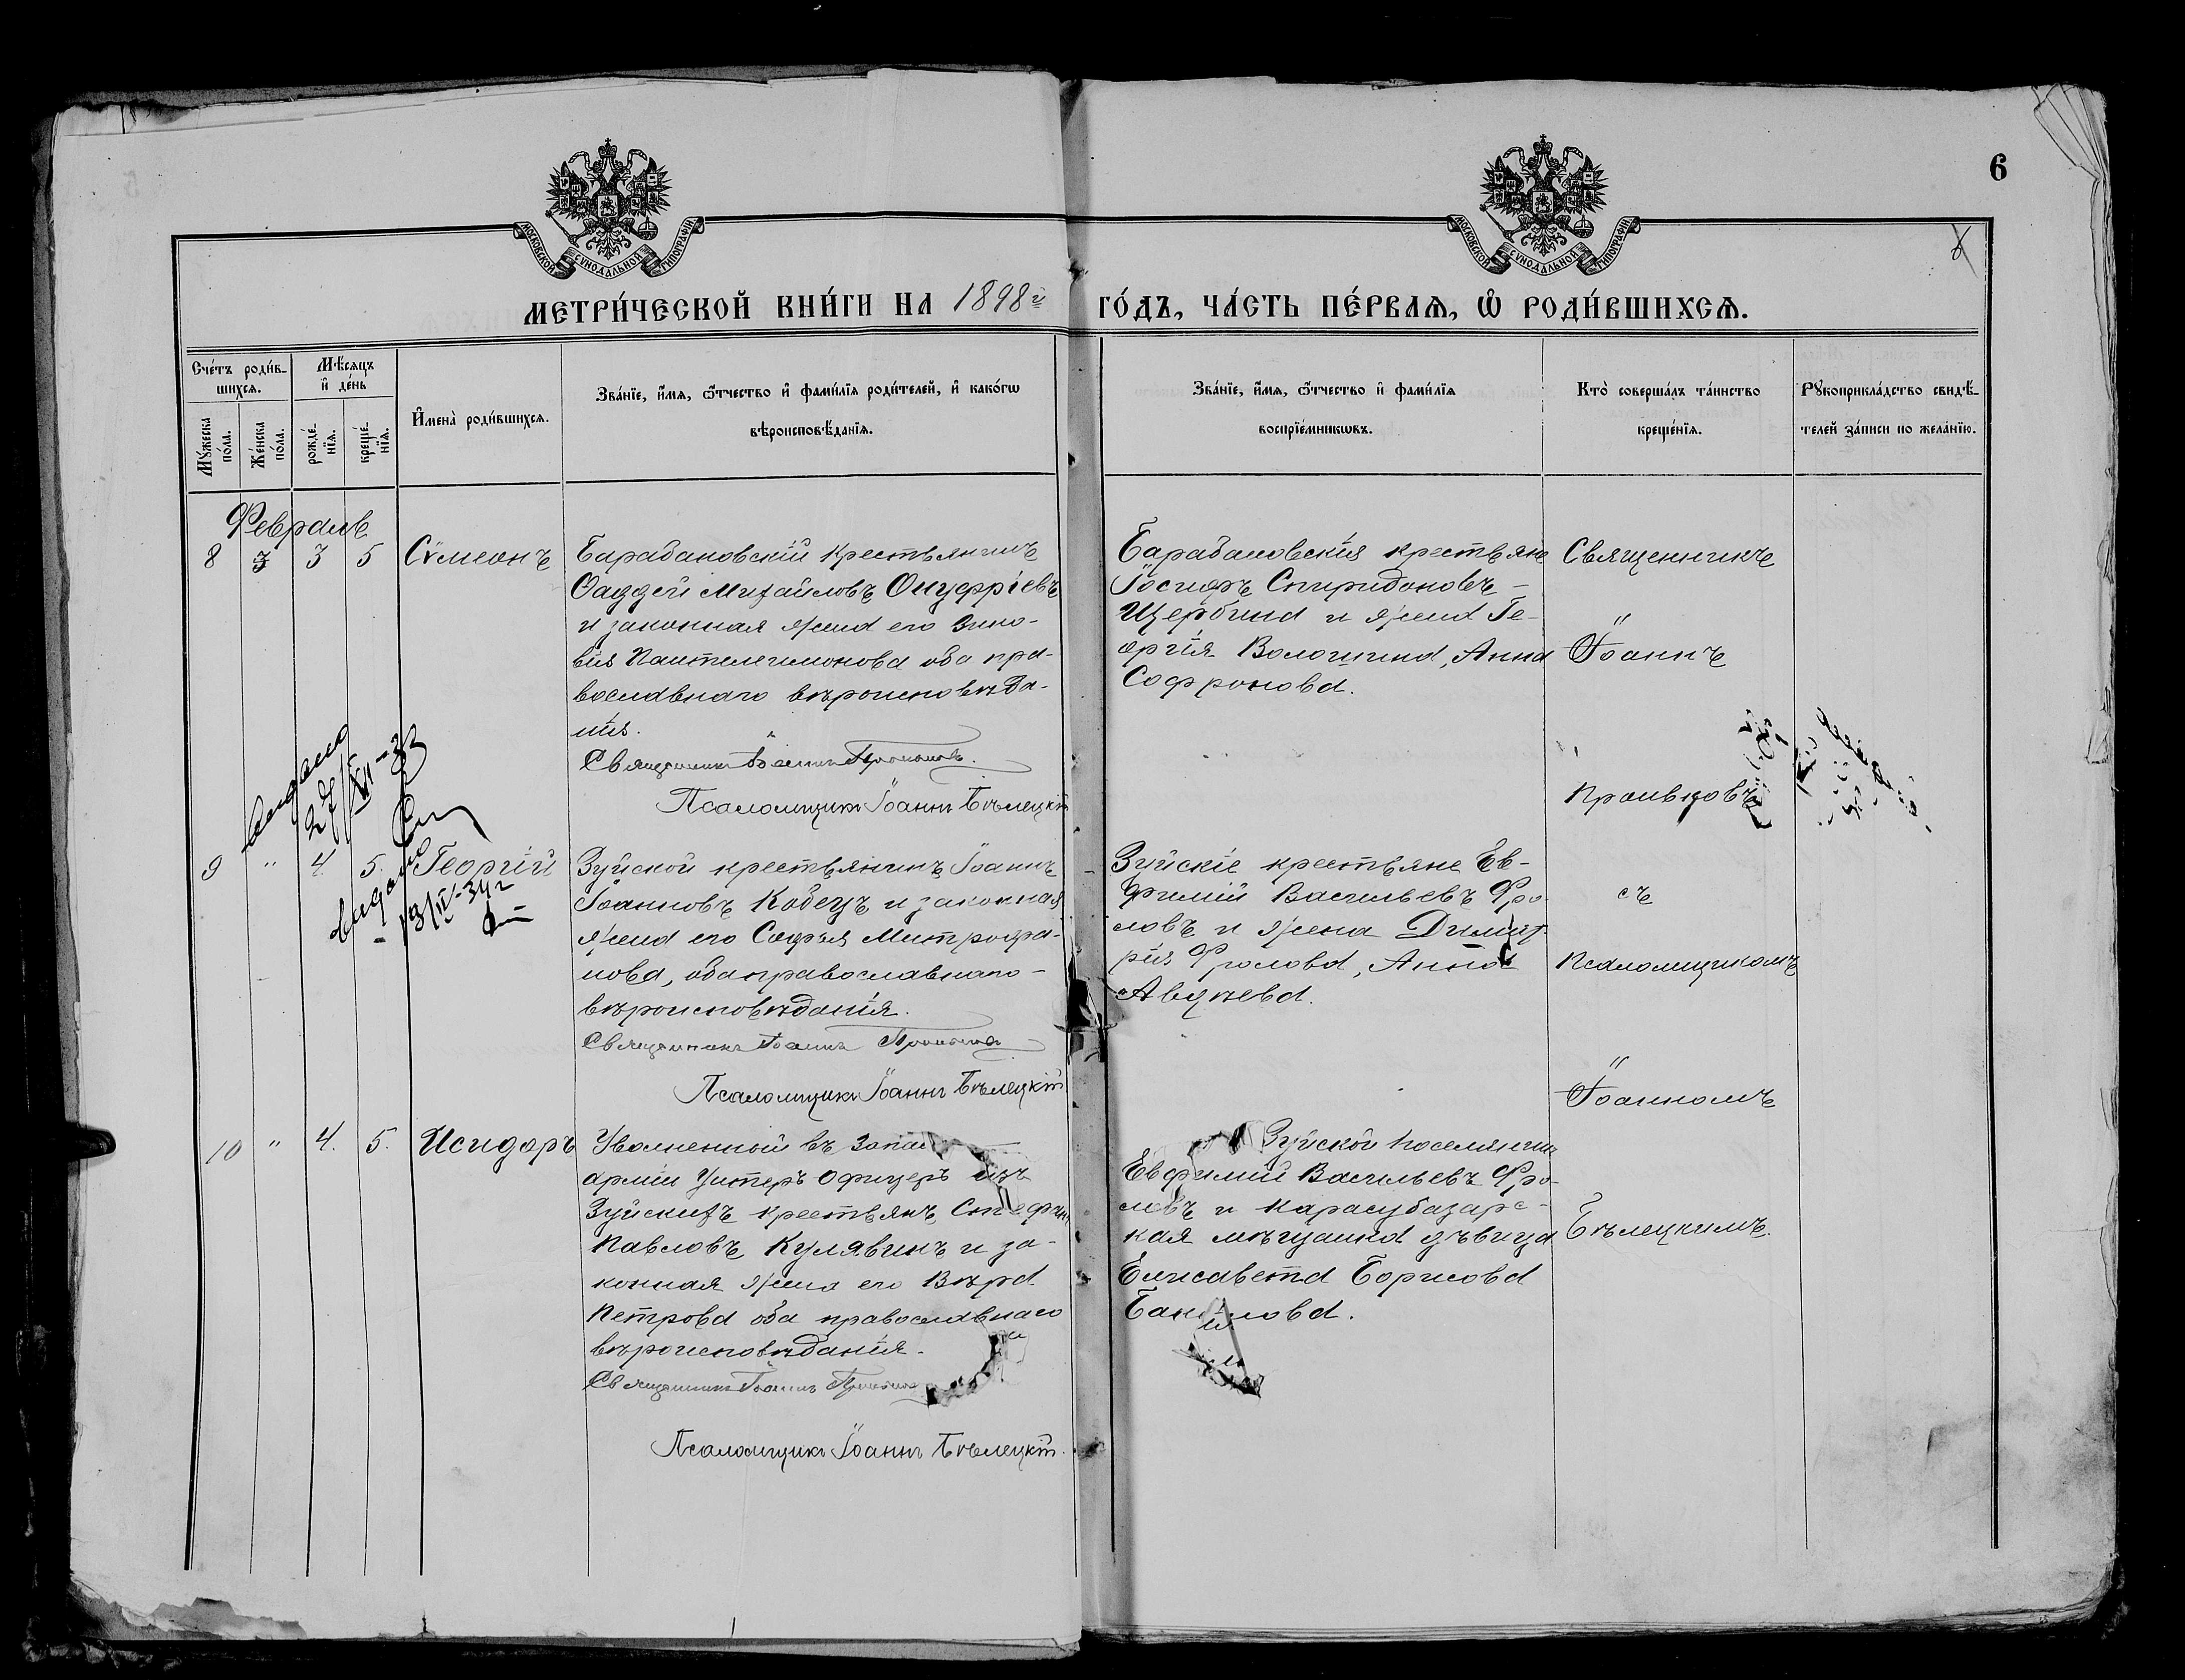 6
МОСКОВСКОЙ СѴНОДАЛЬНОЙ ТИПОГРАФІИ
МОСКОВСКОЙ СѴНОДАЛЬНОЙ ТИПОГРАФІИ
МЕТРИ́ЧЕСКОЙ КНИ́ГИ НА 1898 г
ГО́ДЪ, ЧА́СТЬ ПЕ́РВАѦ, Ѡ РОДИ́ВШИХСѦ.
Сче́тъ роди́в-
шихсѧ.
Мѣ́сѧцъ
и҆ де́нь
Мꙋ́жеска
по́ла.
Же́нска
по́ла.
рожде́-
нїѧ.
креще́-
нїѧ.
И҆мена̀ роди́вшихсѧ.
Зва́нїе, и҆́мѧ, ѻ҆́тчество и҆ фами́лїѧ роди́телей, и҆ како́гѡ
вѣроисповѣ́данїѧ.
Зва́нїе, и҆́мѧ, ѻ҆́тчество и҆ фами́лїѧ
воспрїе́мникѡвъ.
Кто̀ соверша́лъ та́инство
креще́нїѧ.
Рꙋкоприкла́дство свидѣ́-
телей за́писи по жела́нїю.
Февраль
8 3 3 5 Сѵмеонъ
Барабановскій крестьянинъ
Фаддей Михайловъ Онуфріевъ
и законная жена его Зино-
вія Пантелеимонова оба пра-
вославнаго вѣроисповѣда-
нія.
Священникъ Іоаннъ
Псаломщикъ Іоаннъ Бѣлецкій
Барабановскія крестьяне
Іосифъ Спиридоновъ
Щербина и жена Ге-
оргія Волошина, Анна
Софронова.
Священникъ
Іоаннъ
выдано
27/XII-33
9 " 4. 5. Георгій
выдано
13/IV-34 г
Зуйской крестьянинъ Іоаннъ
Іоанновъ Кобецъ и законная
жена его Софья Митрофа-
нова, оба православнаго
вѣроисповѣданія.
Священникъ Іоаннъ
Псаломщикъ Іоаннъ Бѣлецкій
Зуйскіе крестьяне Ев-
фимій Васильевъ Фро-
ловъ и жена Димит-
рія Фролова, Анна
съ
Псаломщикомъ
Іоанномъ
10 " 4. 5. Исидоръ
Уволненной въ Запас
арміи Унтеръ Офицеръ изъ
Зуйскихъ крестьянъ, Стефанъ
Павловъ Кулявинъ и за-
конная жена его Вѣра
Петрова оба православнаго
вѣроисповѣданія.
Священникъ Іоаннъ
Псаломщикъ Іоаннъ Бѣлецкій.
Зуйской поселянинъ
Евфимій Васильевъ Фро-
ловъ и Карасубазарс-
кая мѣщанка дѣвица
Елисавета Борисова
Бѣлецкимъ.